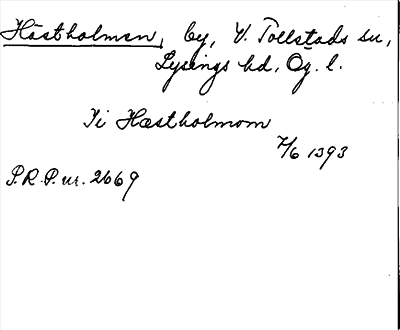 Hästholmen, by, V. Tollstads sn,
Lysings hd, Ög. l.
Ii Hæstholmom
7/6 1393
P.R.P. nr. 2669